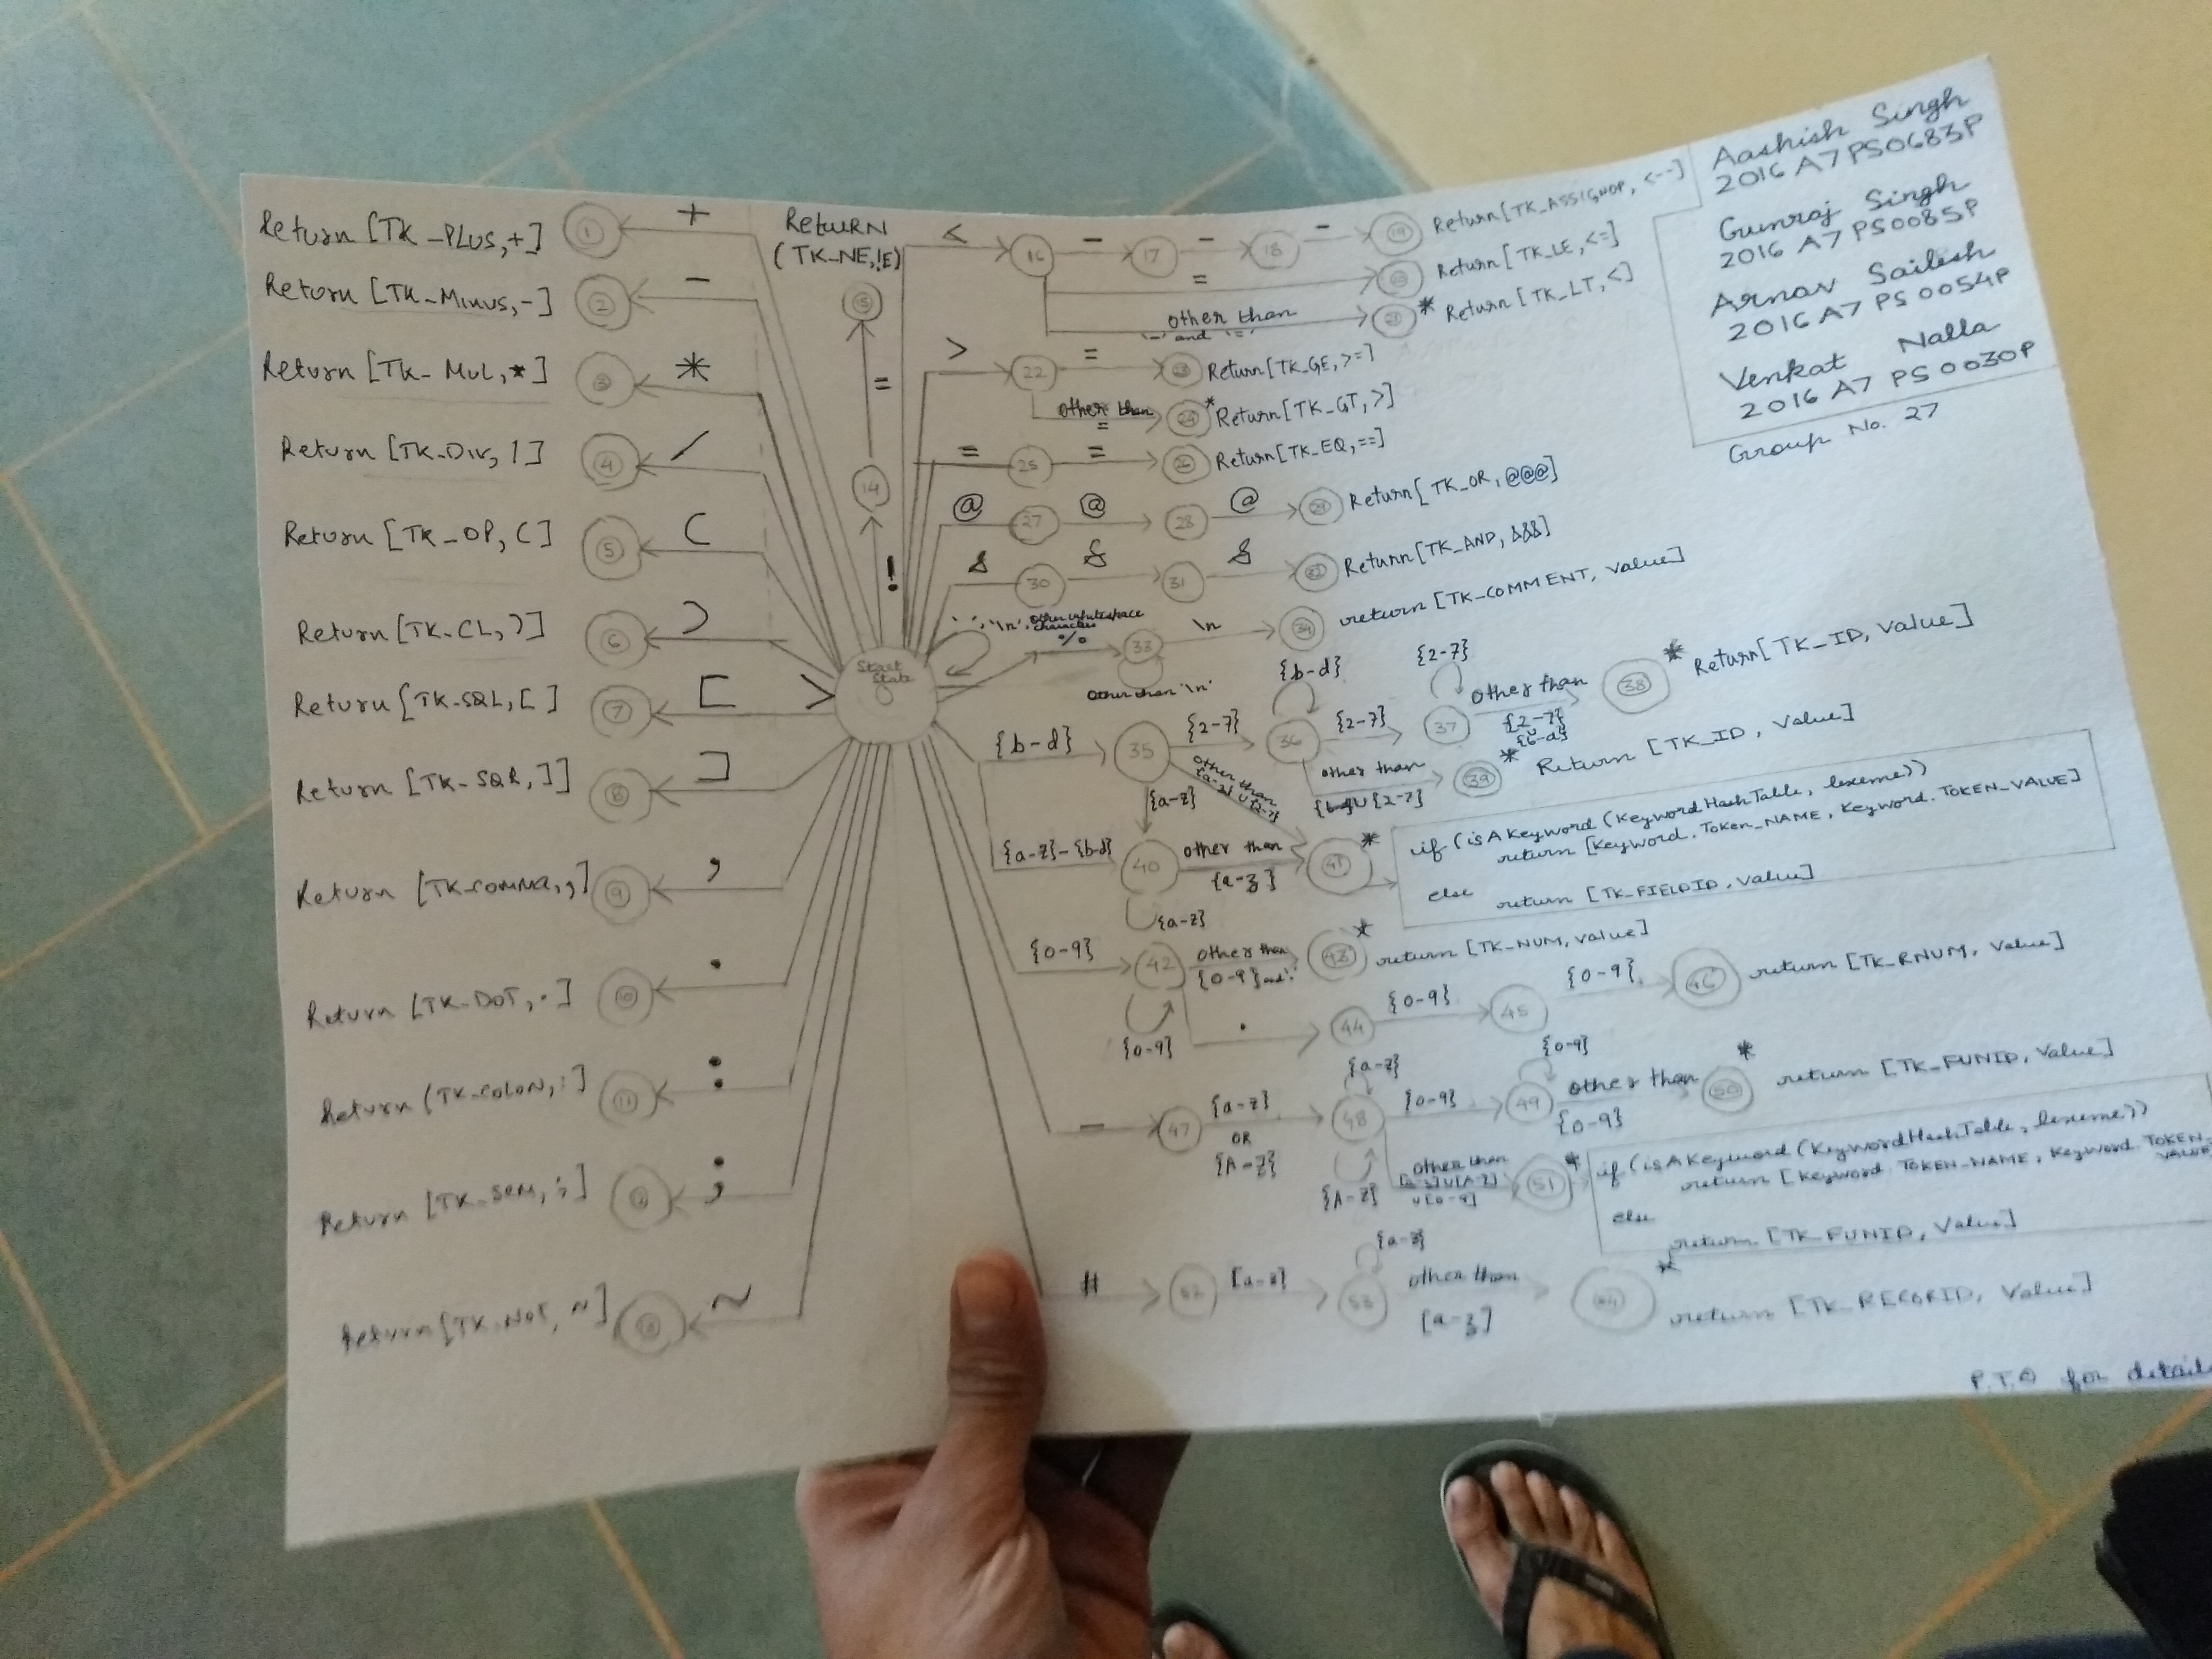 Aashish Singh
2016A7PS0683P
Gunraj Singh
2016A7PS0085P
Arnav Sailesh
2016A7PS0054P
Venkat Nalla
2016A7PS0030P
Group No. 27
Return [TK_PLUS,+] 1 +
Return [TK_MINUS,-] 2 -
Return [TK_MUL,*] 3 *
Return [TK_DIV, /] 4 /
Return [TK_OP, (] 5 (
Return [TK_CL, )] 6 )
Return [TK_SQL, [] 7 [
Return [TK_SQR, ]] 8 ]
Return [TK_COMMA,,] 9 ,
Return [TK_DOT, .] 10 .
Return (TK_COLON, :] 11 :
Return [TK_SEM, ;] 12 ;
Return [TK_NOT, ~] 13 ~
Return
(TK_NE,!E)
15
=
14
!
Start
State
0
< 16 - 17 - 18 - 19 Return [TK_ASSIGNOP, <--]
= Return [TK_LE, <=]
other than
'-' and '='
21 * Return [TK_LT, <]
> 22 = 23 Return [TK_GE, >=]
other than
=
24 * Return [TK_GT, >]
= 25 = 26 Return [TK_EQ, ==]
@ 27 @ 28 @ 29 Return [TK_OR, @@@]
& 30 & 31 & 32 Return [TK_AND, &&&]
' ', '\n', other whitespace
characters
% 33 \n 34 return [TK_COMMENT, Value]
Other than '\n'
{b-d} 35 {2-7} 36 {2-7} 37 other than 38 * Return [TK_ID, Value]
{b-d}
{2-7}
{2-7}
∪
{b-d}
other than
{b-d}∪{2-7}
39 * Return [TK_ID, Value]
{a-z}
other than
{a-z}∪{2-7}
{a-z}-{b-d} 40 other than
{a-z}
41 *
{a-z}
if (isAKeyword (KeywordHashTable, lexeme))
return [Keyword.Token_NAME, Keyword.TOKEN_VALUE]
else return [TK_FIELDID, Value]
{0-9} 42 other than
{0-9} and '.'
43 * return [TK_NUM, value]
{0-9}
. 44 {0-9} 45 {0-9} 46 return [TK_RNUM, Value]
_ 47 {a-z}
OR
{A-Z}
48 {0-9} 49 other than
{0-9}
50 * return [TK_FUNID, Value]
{a-z}
{0-9}
{A-Z}
other than
[a-z]∪[A-Z]
∪[0-9]
51 *
if (isAKeyword (KeywordHashTable, lexeme))
return [Keyword.TOKEN_NAME, Keyword.TOKEN_
VALUE
else
return [TK_FUNID, Value]
# 52 [a-z] 53 other than
[a-z]
54 * return [TK_RECORID, Value]
{a-z}
P.T.O for details